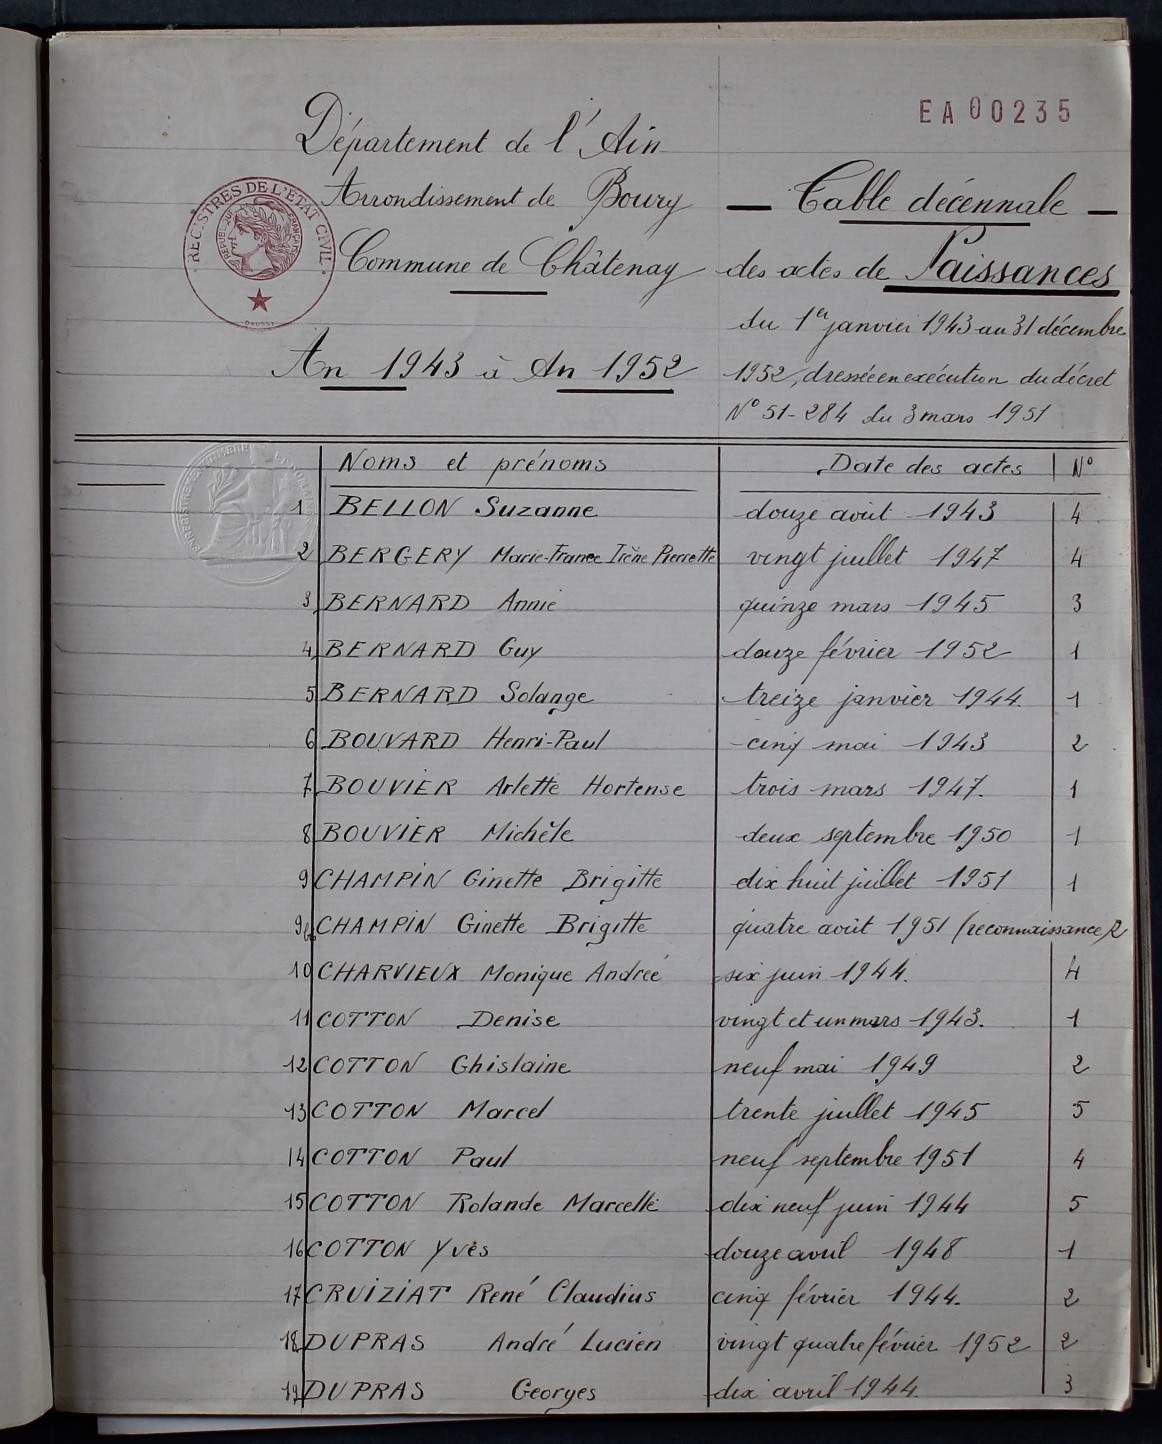 EA00235
Département de l'Ain
Arrondissement de Bourg
Commune de Châtenay
An 1943 à An 1952
REGISTRES DE L'ETAT CIVIL
— Table décennale —
des actes de Naissances
du 1er janvier 1943 au 31 décembre
1952, dressée en exécution du décret
N° 51-284 du 3 mars 1951
Noms et prénoms Date des actes N°
1 BELLON Suzanne douze août 1943 4
2 BERGERY Marie-France Irène Pierrette vingt juillet 1947 4
3 BERNARD Annie quinze mars 1945 3
4 BERNARD Guy douze février 1952 1
5 BERNARD Solange treize janvier 1944. 1
6 BOUVARD Henri-Paul cinq mai 1943 2
7 BOUVIER Arlette Hortense trois mars 1947. 1
8 BOUVIER Michèle deux septembre 1950 1
9 CHAMPIN Ginette Brigitte dix huit juillet 1951 1
9b CHAMPIN Ginette Brigitte quatre août 1951 (reconnaissance) 2
10 CHARVIEUX Monique Andrée six juin 1944. 4
11 COTTON Denise vingt et un mars 1943. 1
12 COTTON Ghislaine neuf mai 1949 2
13 COTTON Marcel trente juillet 1945 5
14 COTTON Paul neuf septembre 1951 4
15 COTTON Rolande Marcelle dix neuf juin 1944 5
16 COTTON Yves douze avril 1948 1
17 CRUIZIAT René Claudius cinq février 1944. 2
18 DUPRAS André Lucien vingt quatre février 1952 2
19 DUPRAS Georges dix avril 1944. 3